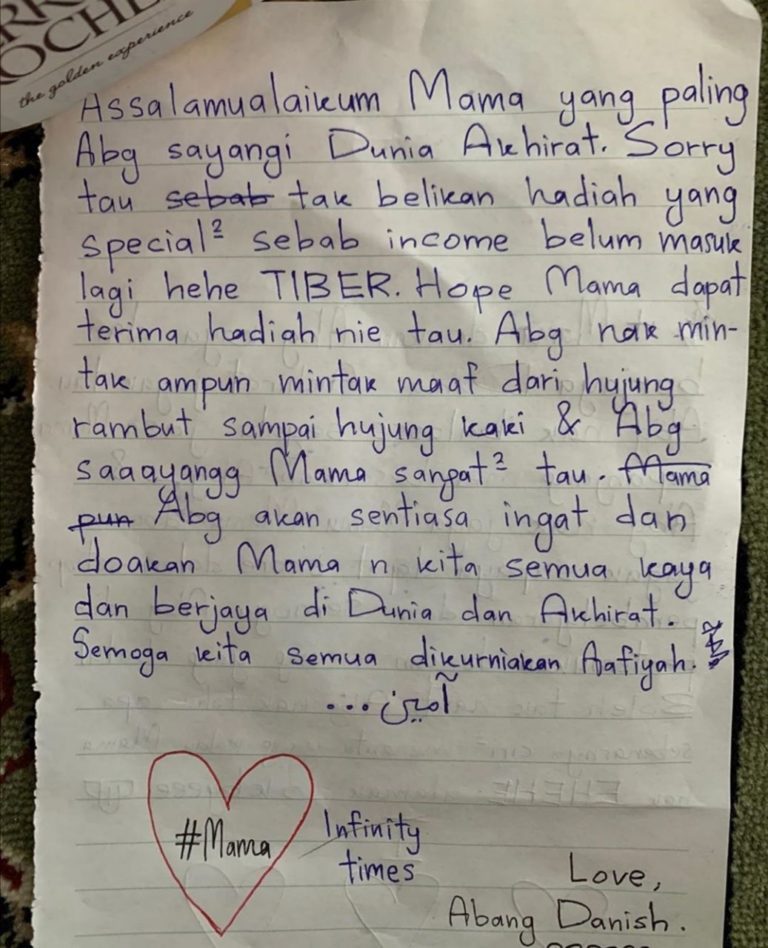 OCHE
the golden experience
Assalamualaikum Mama yang paling
Abg sayangi Dunia Akhirat. Sorry
tau sebab tak belikan hadiah yang
special² sebab income belum masuk
lagi hehe TIBER. Hope Mama dapat
terima hadiah nie tau. Abg nak min-
tak ampun mintak maaf dari hujung
rambut sampai hujung kaki & Abg
saaayangg Mama sangat² tau. Mama
pun Abg akan sentiasa ingat dan
doakan Mama n kita semua kaya
dan berjaya di Dunia dan Akhirat.
Semoga kita semua dikurniakan Aafiyah.
آمين...
#Mama
Infinity
times
Love,
Abang Danish.